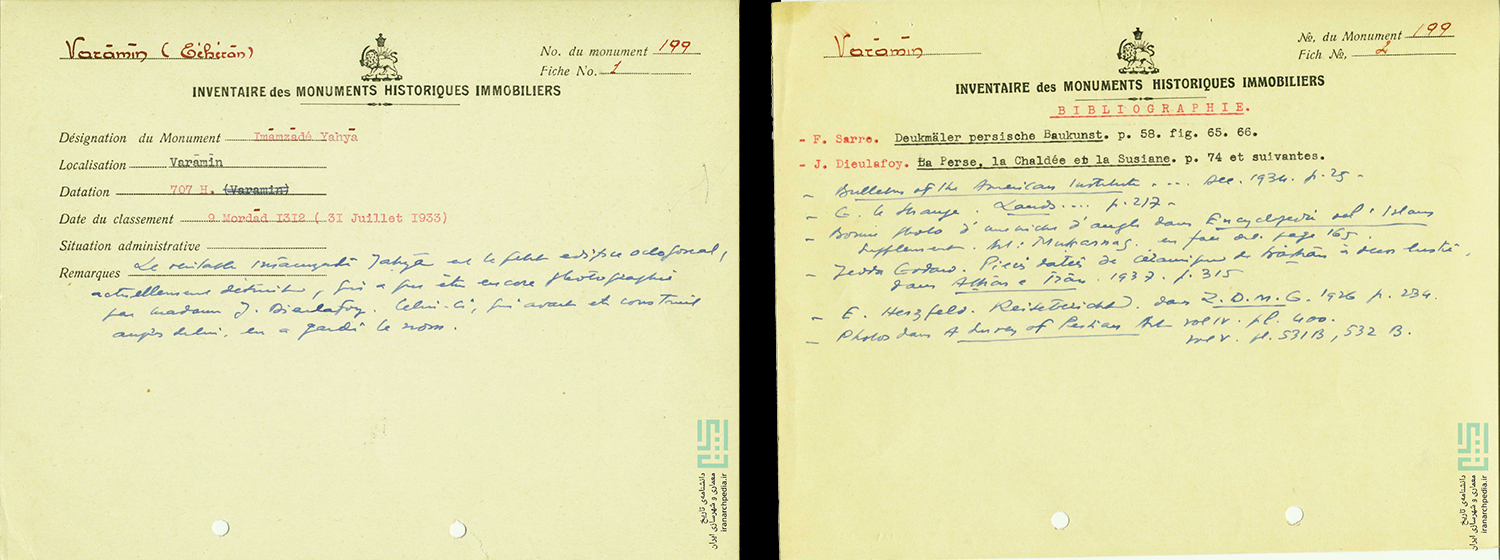 Varāmīn (Téhérān)
No. du monument 199
Fiche No. 1
INVENTAIRE des MONUMENTS HISTORIQUES IMMOBILIERS
Désignation du Monument Imāmzādé Yahyā
Localisation Varāmīn
Datation 707 H. (Varamin)
Date du classement 9 Mordād 1312 ( 31 Juillet 1933)
Situation administrative
Remarques Le véritable Imāmzādé Yahyā est le petit édifice octogonal,
actuellement détruit, qui a pu être encore photographié
par madame J. Dieulafoy. Celui-ci, qui avait été construit
auprès de lui, en a gardé le nom.
دانشنامه‌ی تاریخ
معماری و شهرسازی ایران
iranarchpedia.ir
Varāmīn
No, du Monument 199
Fich No, 2
INVENTAIRE des MONUMENTS HISTORIQUES IMMOBILIERS
BIBLIOGRAPHIE.
- F. Sarre. Deukmäler persische Baukunst. p. 58. fig. 65. 66.
- J. Dieulafoy. La Perse, la Chaldée et la Susiane. p. 74 et suivantes.
- Bulletin of the American Institute .... Dec. 1934. p. 25 -
- G. le Strange. Lands .... p. 217 -
- Bonne photo d'une niche d'angle dans Encyclopédie de l'Islam
Supplement. Art: Mukarnas. en face de page 165.
- Yedda Godard. Pièces datées de céramique de Kāshān à décor lustré,
dans Athār-e Īrān. 1937. p. 315
- E. Herzfeld. Reisebericht. dans Z.D.M.G. 1926 p. 234.
- Photos dans A Survey of Persian Art vol IV. pl. 400.
vol V. pl. 531 B, 532 B.
دانشنامه‌ی تاریخ
معماری و شهرسازی ایران
iranarchpedia.ir